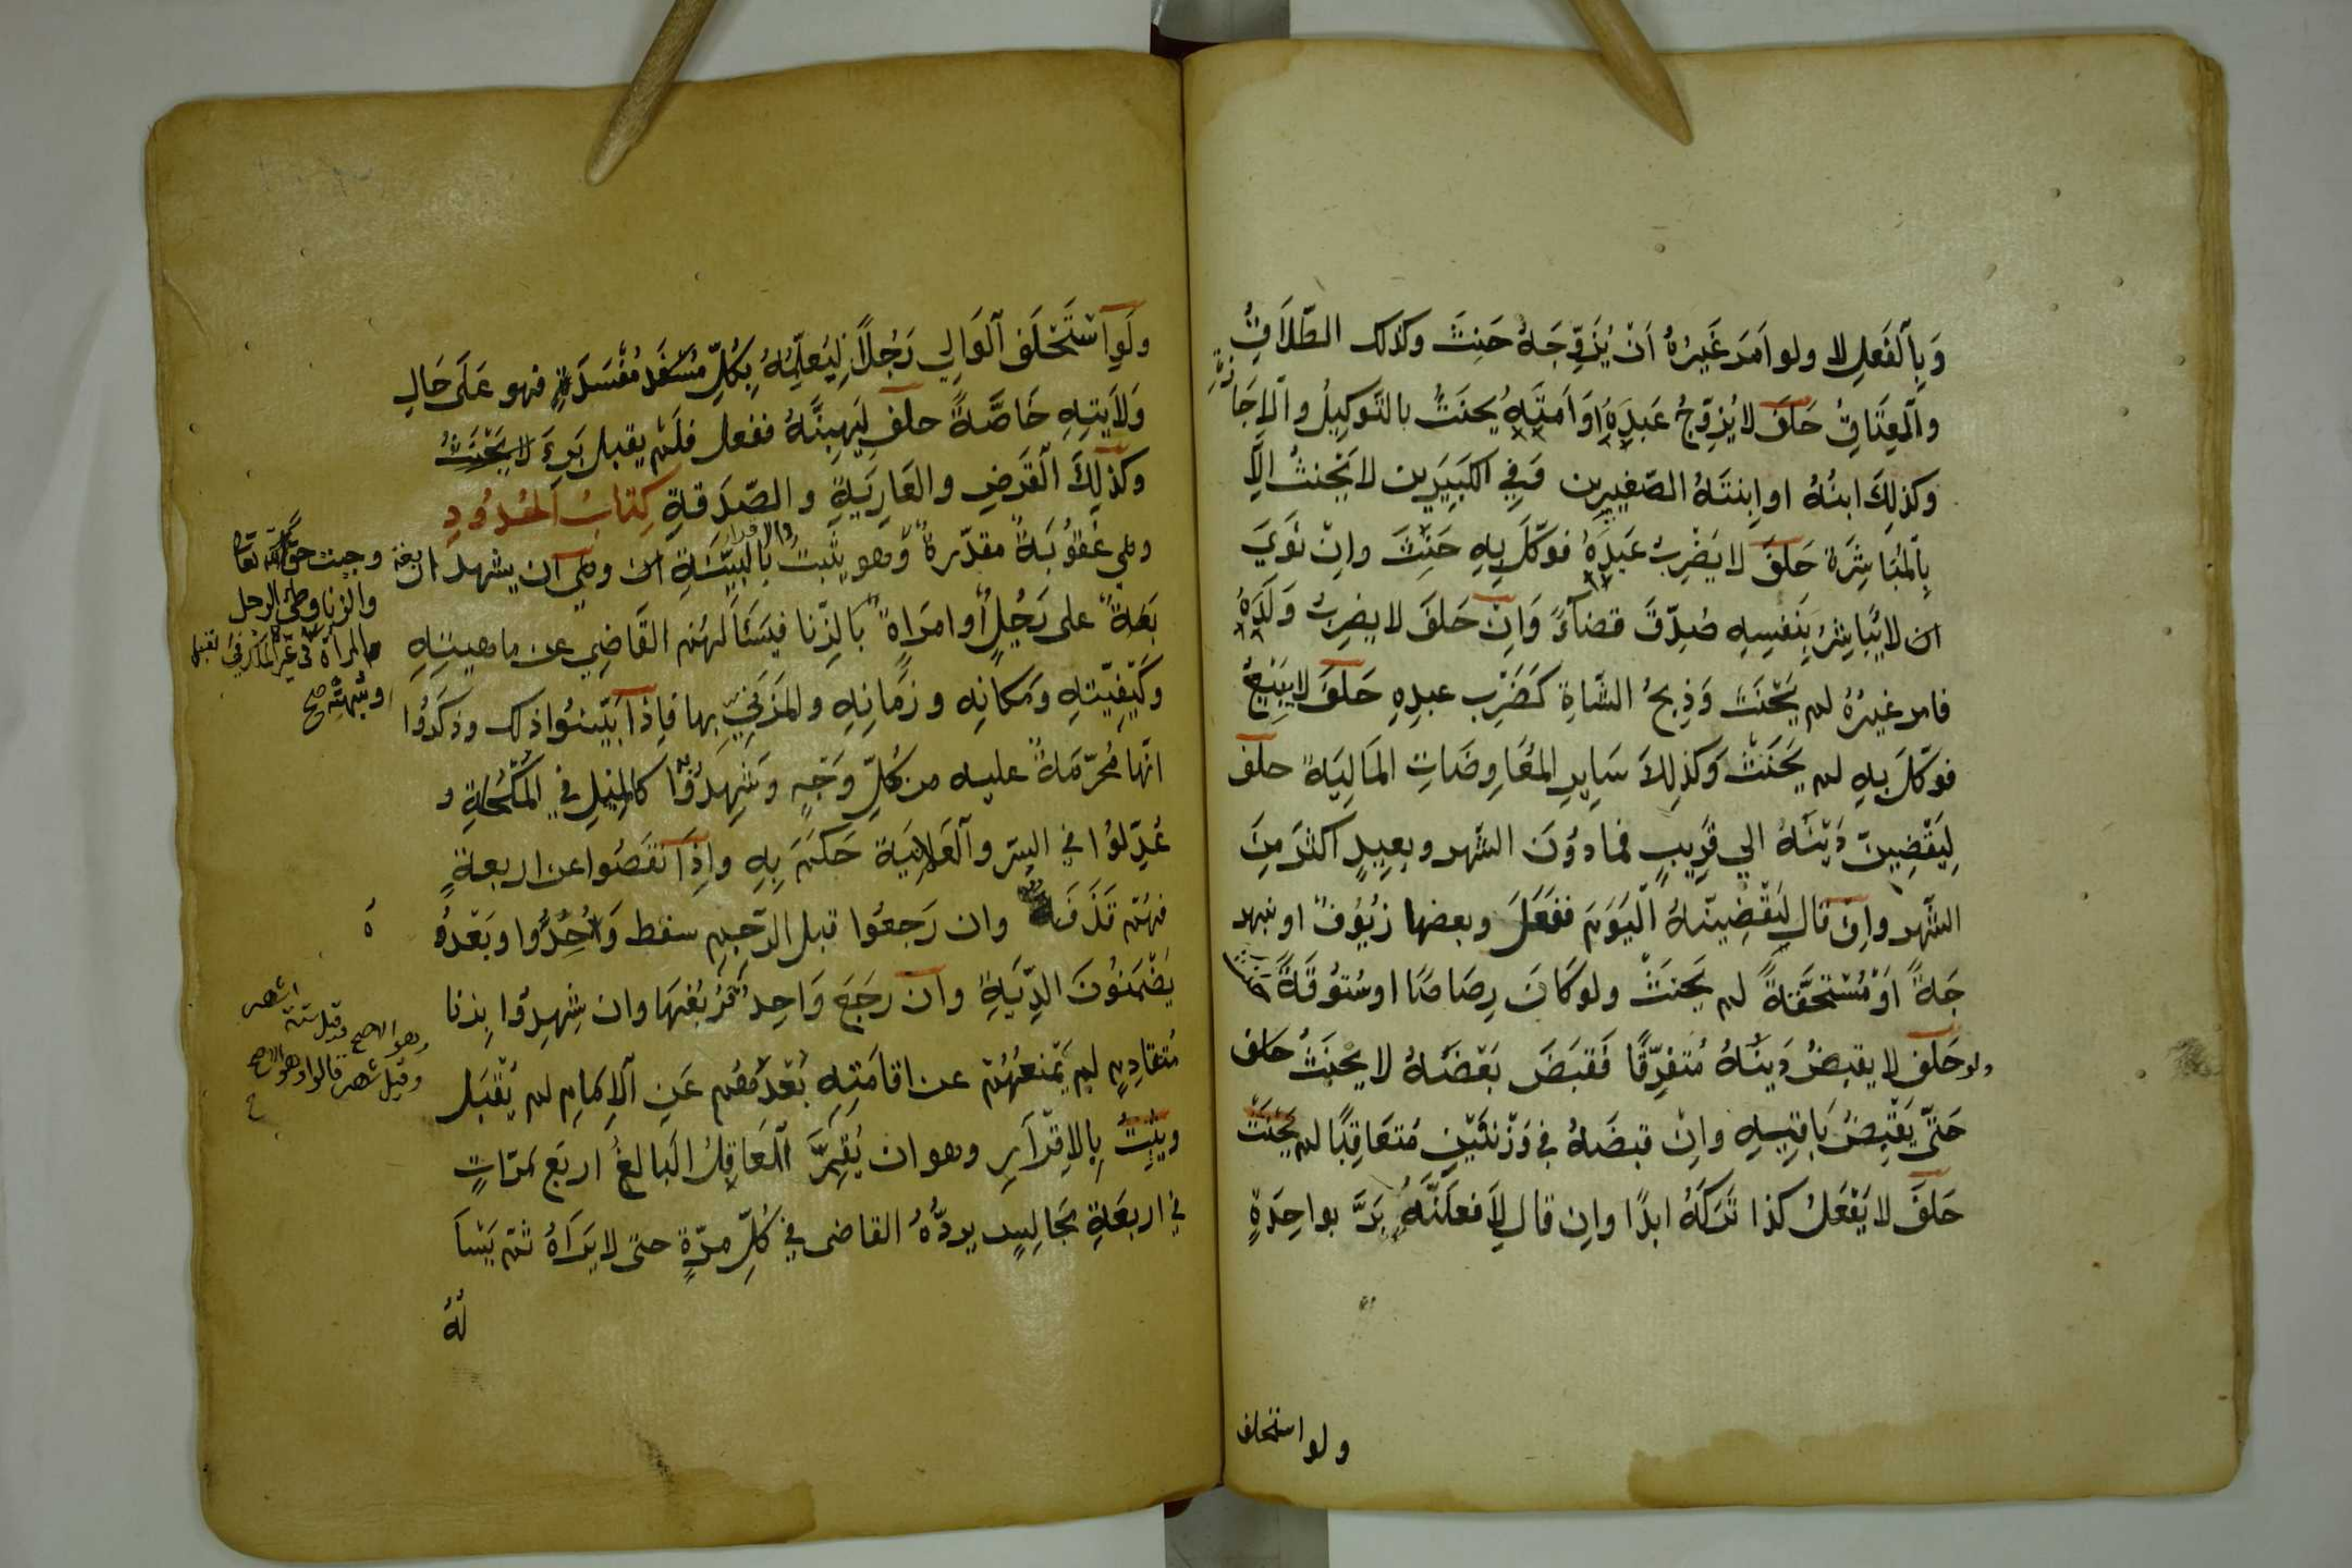 وَبِالْفَعِلِ لا ولو اَمَرَ غَيْرُهُ اَنْ يُزَوِّجَهُ حَنِثَ وكذلك الطّلَاقُ
والْعِتَاقُ حَلَفَ لا يُزوِّجُ عَبدِهِ اَوْ اَمتِهِ يُحنَثُ بالتَّوكِيلُ والْاِجَازَةِ
وكذلِكَ ابنُهُ او ابنتَهُ الصّغيرين وَفِي الكَبيَرَين لا يَحْنثُ اِلَّا
بِالمُبَاشِرَة حَلَفَ لا يَضْرِبُ عَبدِهُ فوَكّلَ بِهِ حَنِثَ واِنْ نَوَيَ
ان لا يُبَاشِرُ بِنَفسِهِ صُدِّقَ قضاءً وَاِنْ حَلَفَ لا يضرِبُ وَلَدِهُ
فامر غيرُهُ لم يَحْنَث وَذِبحُ الشَّاةِ كَضَرْب عبدِهِ حَلَفَ لا يَبِيْعُ
فوَكّلَ بِهِ لم يَحْنَثْ وَكذلِكَ سَايِرِ المُعَاوِضَاتِ المَالِيَةِ حلف
لِيَقْضِينّ دَيْنَهُ الي قَرِيبٍ فما دُوْنَ الشَّهر وبعِيدٍ اكثرَ مِنَ
الشّهر واِن قال لَيَقْضِينّهُ الْيَوَمَ ففَعَلَ وبعضها زيُوُفٌ او نبهر
جَةً اَوْ مُسْتحقَّةً لم يَحنَثْ ولو كَانَ رِصَاصًا او ستُوقَةً حنث
ولو حَلف لا يقبضُ دَينَهُ مُتفرِّقًا فَقبَضَ بَعْضَهُ لا يَحْنَثُ حلف
حَتّى يَقْبِضُ بَاقيهِ واِنْ قبضَهُ في وَزْنتَيْنِ مُتعَاقِبًا لم يَحْنَثْ
حَلَفَ لا يَفْعَلُ كذا تَرَكَهُ ابدًا واِن قال لَافعلَنَّهُ بَرَّ بواحِدَةٍ
ولو استحلف
ولَوِ اسْتَحْلَف الْوَالِي رَجُلًا لِيُعلِّمُهُ بِكُلِّ مُفْسِدَةٍ فهو عَلَى حَالِ
وَلَايتِهِ خَاصَّةً حلف لِيَهِبنَّهُ ففعل فلَم يقبل بَرءَ لا يَحْنَثُ
وكذلِكَ الْقَرَضِ والعَارِيَةِ والصّدَقةِ كِتَابُ الحُدُودِ
وهي عُقوُبَةٌ مقدّرةٌ وهو يثْبتُ بالبيّنَةِ والاقرار وهي ان يشهد ار
بَعَةٌ على رَجُلٍ او امرَاةٍ بالزّنا فيَسْاَلهُم القَاضِي عن ماهيّتِهِ
وكَيْفِيّتِهِ وَمكانِه وزمَانِهِ والمَزنيّ بِها فاِذا بَيّنُوا ذلك وذكَرُوا
انّها مُحَرّمَةً عليه من كُلِّ وَجْهٍ وَشَهِدُوْا كالمِيْلِ في المُكْحُلَةِ و
عُدِّلوُا في السِر والْعَلانِيَة حَكَمَ بِهِ واِذَا نقَصُوا عن اربعةٍ
فهُم قَذَفَةٌ وان رَجعُوا قبل الرّجمِ سقط وَحُدُّوا وبَعْدهُ
يَضْمَنُوْنَ الدِّيَةِ وان رَجَعَ وَاحِد فَرُبعُهَا وان شهِدوا بِزنا
مُتقادِمٍ لم يَمْنعْهُمْ عن اقامَتِهِ بُعْدُهُم عَنِ الْاِمَامِ لم يُقْبَل
ويثْبُتُ بالاِقْرَارِ وهو ان يُقِرَّ الْعَاقِلُ البَالغُ اربَع مَرّاتٍ
في اربعَةِ مَجَالِسٍ يردُّهُ القاضى في كُلِّ مَرّةٍ حتى لا يَرَاهُ ثم يَسْاَ
لهُ
وجبت حقا لله تعا
والزنا وطئ الرجل
المراة في غير الملك في القبل
وشبهته صح
اشهر
وهو الاصح وقيل ستة
وقيل شهر قالوا وهو الاصح